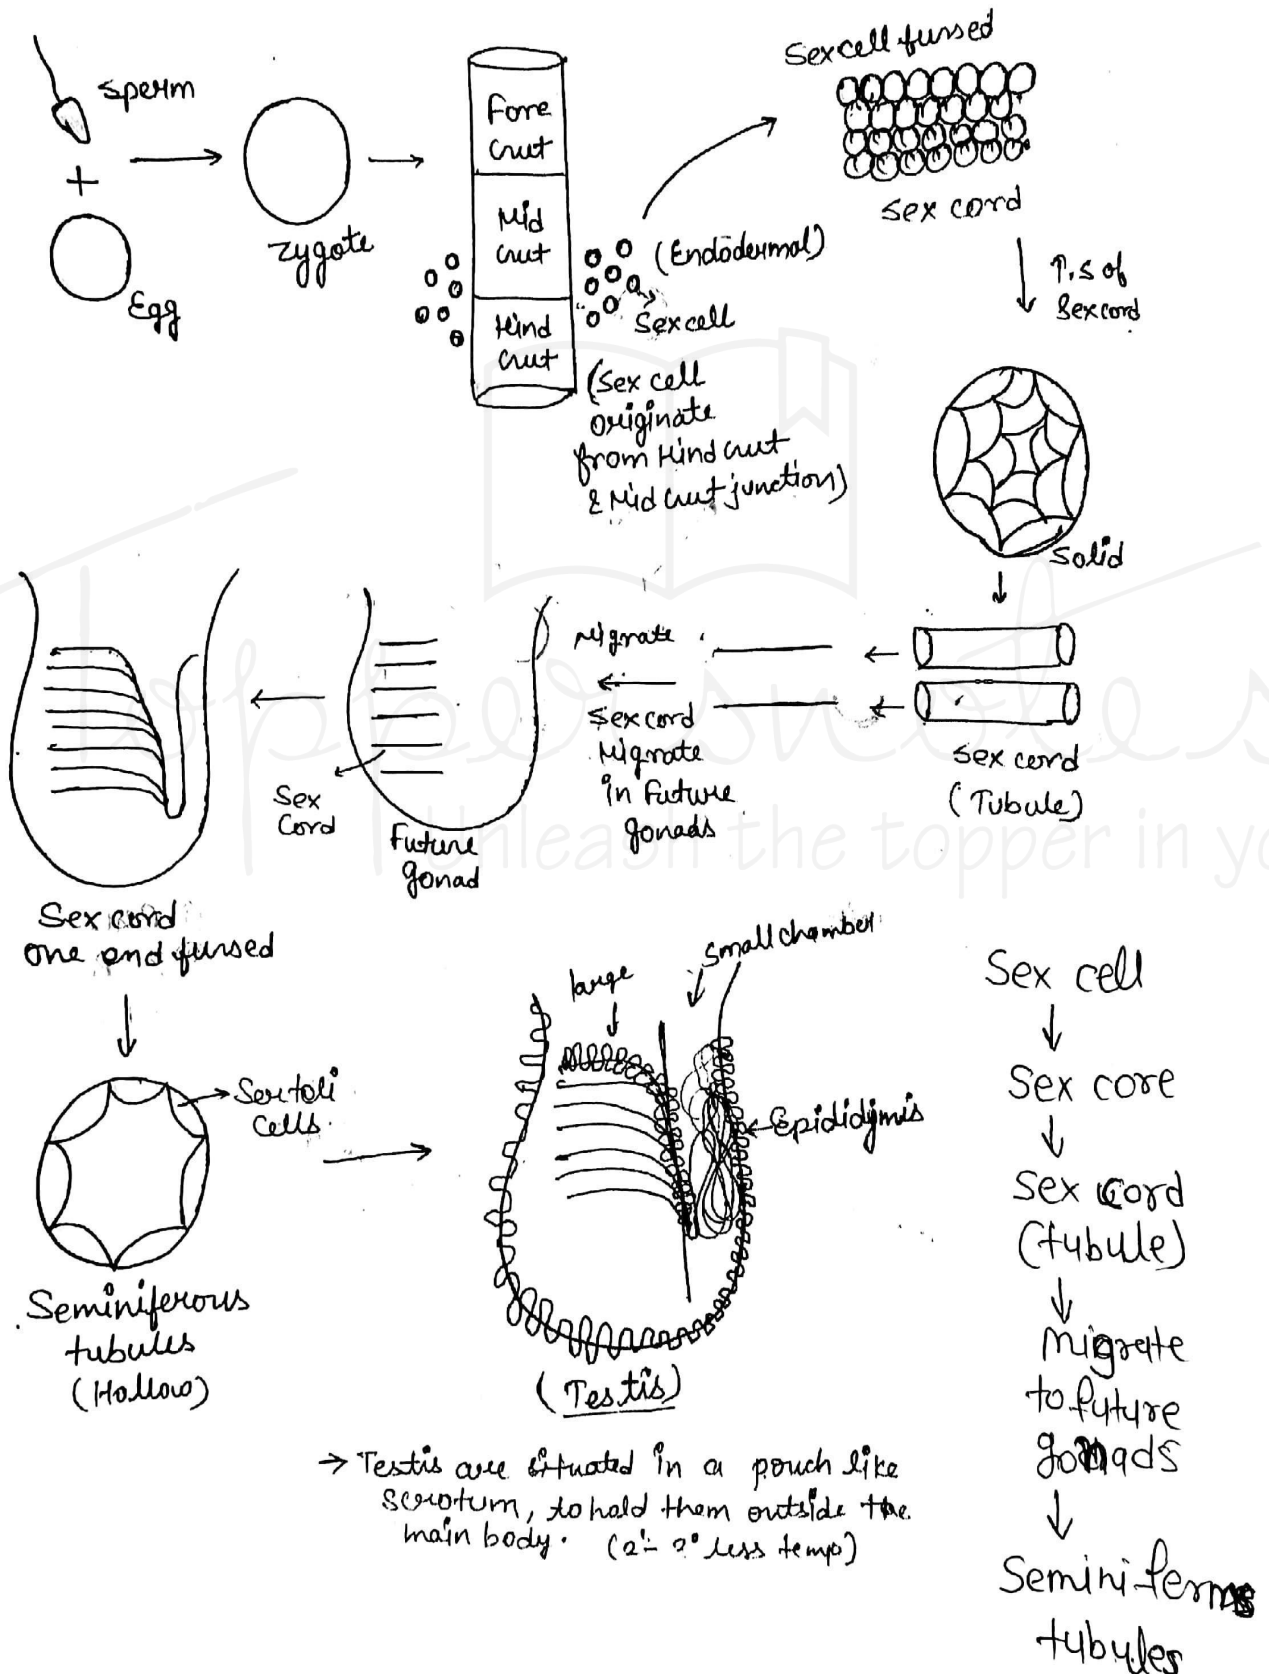 Sperm
+
Egg
Zygote
Fore
Gut
Mid
Gut
Hind
Gut
(Endodermal)
Sex cell
(Sex cell
originate
from Hind Gut
& Mid Gut junction)
Sex cell fussed
Sex cord
T.S of
Sex cord
Solid
Sex cord
(Tubule)
Migrate
Sex cord
Migrate
in Future
gonads
Sex
Cord
Future
gonad
Sex cord
one end fursed
Sertoli
Cells.
Seminiferous
tubules
(Hollow)
large
Small chamber
Epididymis
(Testis)
→ Testis are situated in a pouch like
scrotum, to hold them outside the
main body. (2°- less temp)
Sex cell
Sex core
Sex cord
(tubule)
Migrate
to future
gonads
tubules
Toppersnotes
Unleash the topper in yo